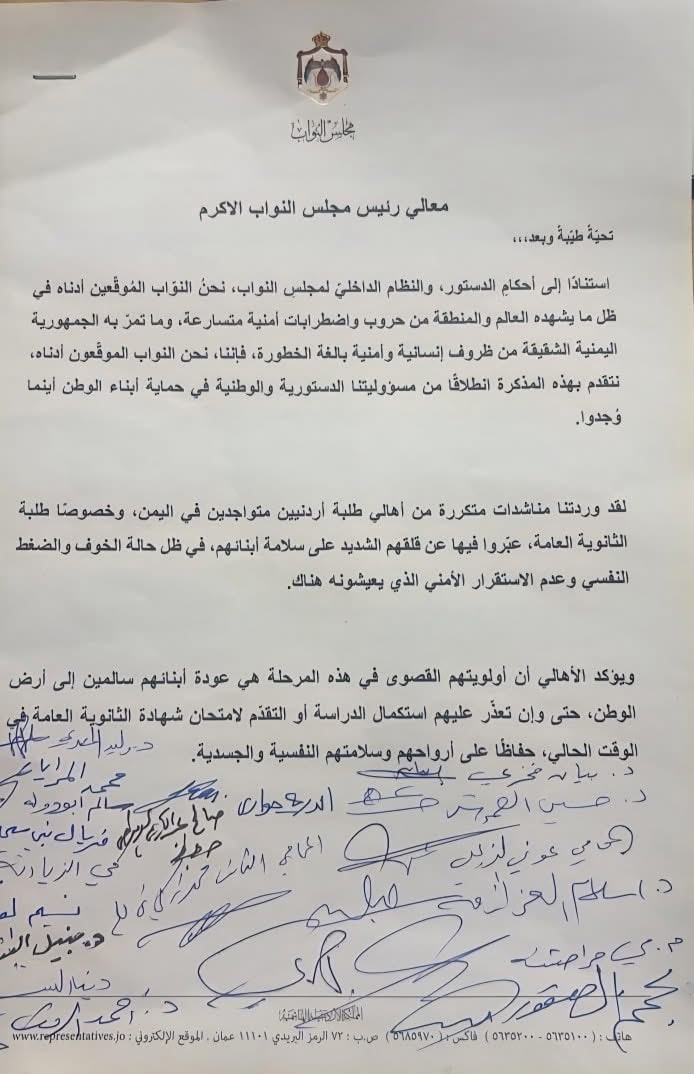 مجلس النواب
معالي رئيس مجلس النواب الاكرم
تحيّةً طيّبةً وبعد،،،
استنادًا إلى أحكامِ الدستور، والنظام الداخليّ لمجلسِ النواب، نحنُ النوّاب المُوقّعين أدناه في
ظل ما يشهده العالم والمنطقة من حروب واضطرابات أمنية متسارعة، وما تمرّ به الجمهورية
اليمنية الشقيقة من ظروف إنسانية وأمنية بالغة الخطورة، فإننا، نحن النواب الموقّعون أدناه،
نتقدم بهذه المذكرة انطلاقًا من مسؤوليتنا الدستورية والوطنية في حماية أبناء الوطن أينما
وُجدوا.
لقد وردتنا مناشدات متكررة من أهالي طلبة أردنيين متواجدين في اليمن، وخصوصًا طلبة
الثانوية العامة، عبّروا فيها عن قلقهم الشديد على سلامة أبنائهم، في ظل حالة الخوف والضغط
النفسي وعدم الاستقرار الأمني الذي يعيشونه هناك.
ويؤكد الأهالي أن أولويتهم القصوى في هذه المرحلة هي عودة أبنائهم سالمين إلى أرض
الوطن، حتى وإن تعذّر عليهم استكمال الدراسة أو التقدّم لامتحان شهادة الثانوية العامة في
الوقت الحالي، حفاظًا على أرواحهم وسلامتهم النفسية والجسدية.
د. بيان فخري
محمد المرايات
د. حسين العموش
سالم ابودوله
المحامي عوني الزعبي
د. اسلام العزازمة
د. نبيل
نسيم
المملكة الأردنية الهاشمية
هاتف : ( ٥٦٣٥١٠٠ - ٥٦٣٥٢٠٠ ) فاكس : ( ٥٦٨٥٩٧٠ ) ص.ب : ٧٢ الرمز البريدي ١١١٠١ عمان . الموقع الإلكتروني : www.representatives.jo